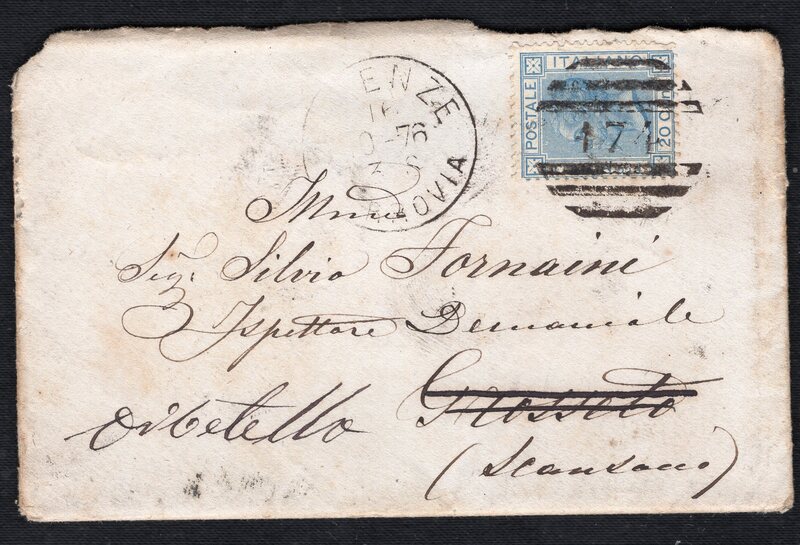 ENZE
76
3 S
OVIA
POSTALE
ITALIANO
20 Cent
174
Illmo
Sigr. Silvio Fornaini
Ispettore Demaniale
Orbetello Grosseto
(Scansano)